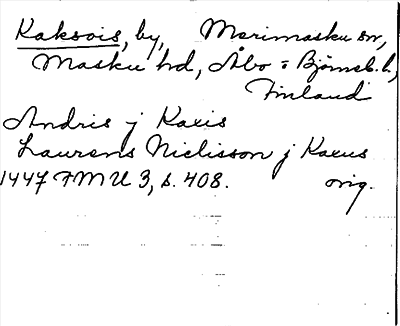 Kaksois, by, Merimasku sn,
Masku hd, Åbo o Björneb. l.,
Finland
Andris j Kaxis
Laurens Niclisson j Kaxus
1447 FMU 3, s. 408. orig.